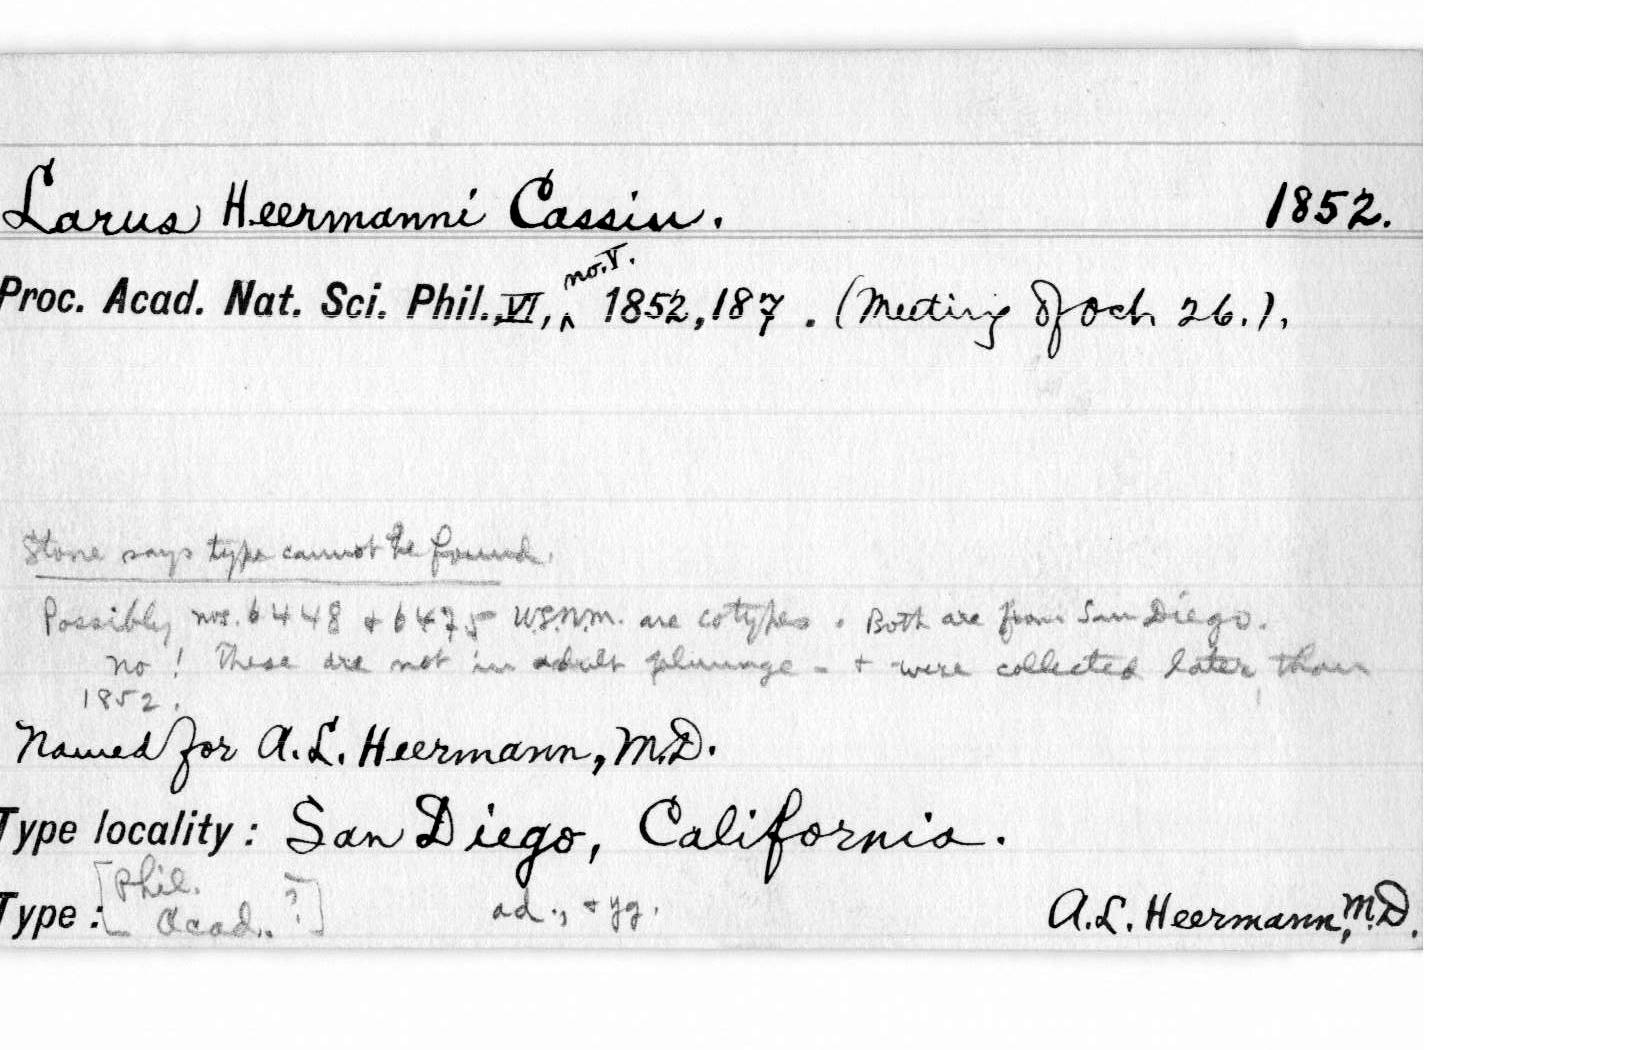 Larus Heermanni Cassin. 1852.
Proc. Acad. Nat. Sci. Phil., VI, no. V. 1852, 187. (Meeting of Oct. 26.).
Stone says type cannot be found.
Possibly nos. 6448 + 6475 U.S.N.M. are cotypes. Both are from San Diego.
No! These are not in adult plumage - + were collected later than
1852.
Named for A. L. Heermann, M.D.
Type locality: San Diego, California.
Type: [Phil. Acad. ?] ad., + yg. A. L. Heermann, M.D.